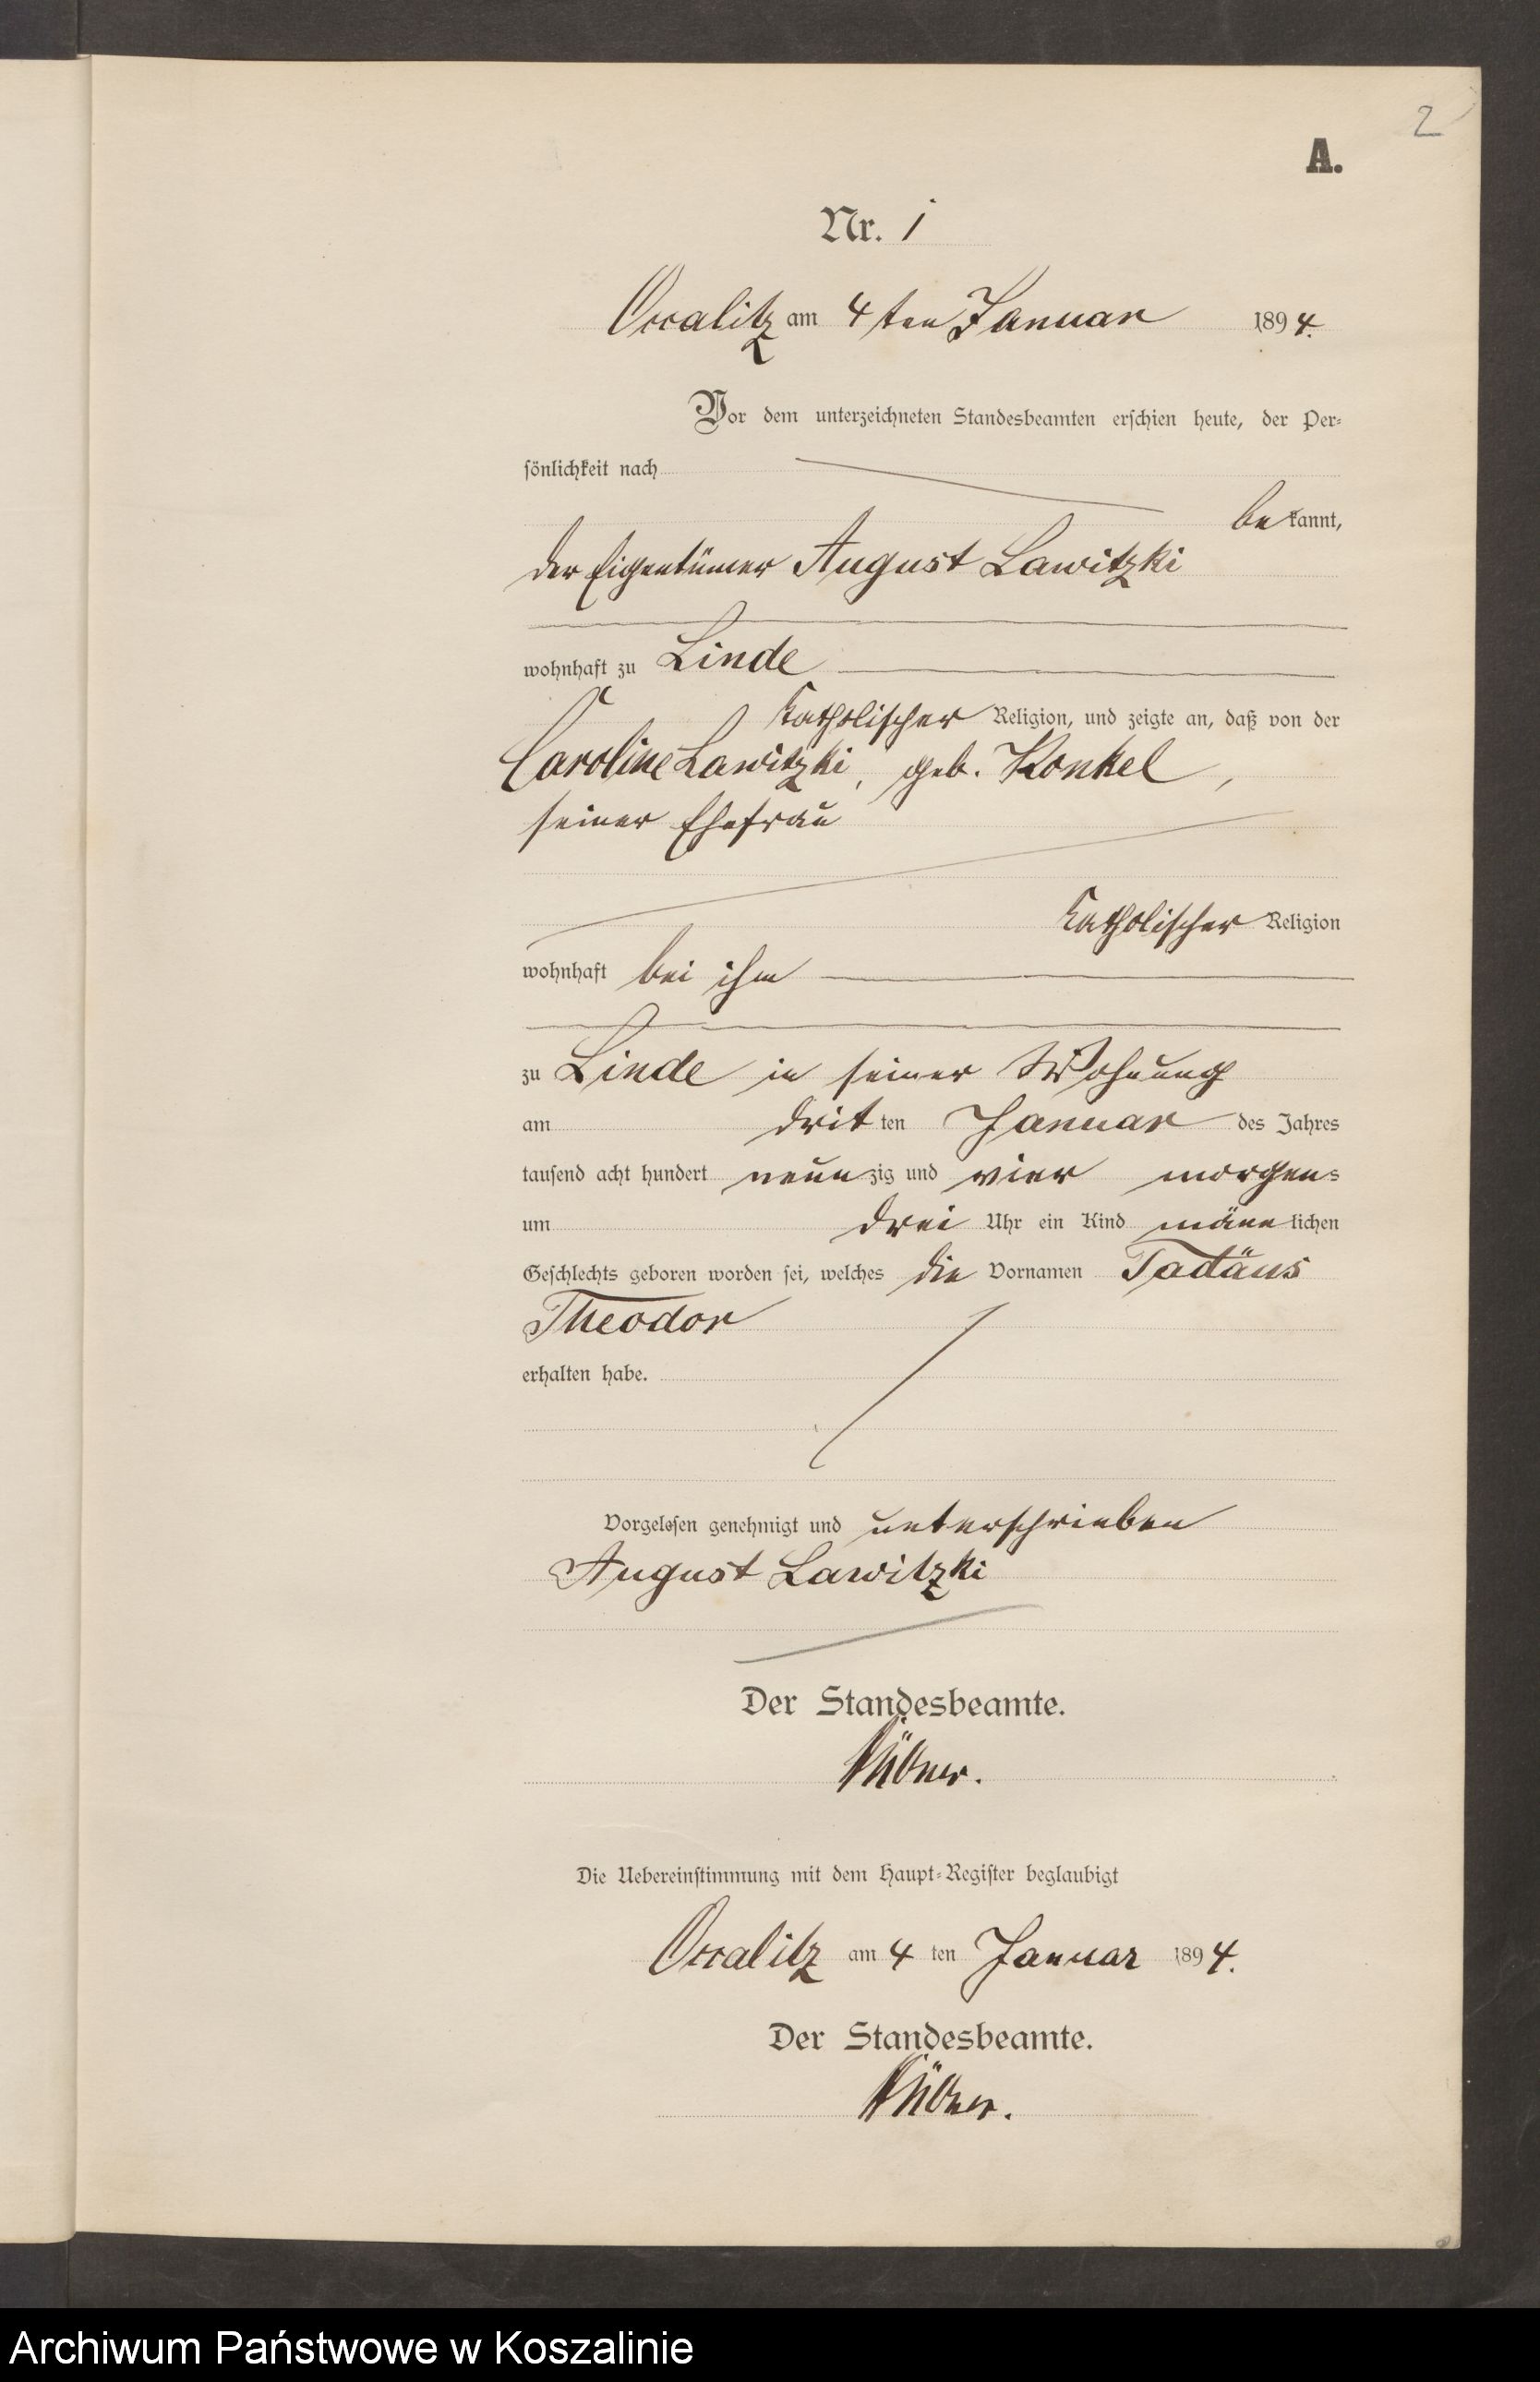 2
A.
Nr. 1
Occalitz am 4ten Januar 1894.
Vor dem unterzeichneten Standesbeamten erschien heute, der Per-
sönlichkeit nach
bekannt,
der Eigentümer August Lawitzki
wohnhaft zu Linde
katholischer Religion, und zeigte an, daß von der
Caroline Lawitzki, geb. Konkel,
seiner Ehefrau
katholischer Religion
wohnhaft bei ihm
zu Linde in seiner Wohnung
am dritten Januar des Jahres
tausend acht hundert neunzig und vier morgens
um drei Uhr ein Kind männlichen
Geschlechts geboren worden sei, welches die Vornamen Tadäus
Theodor
erhalten habe.
Vorgelesen genehmigt und unterschrieben
August Lawitzki
Der Standesbeamte.
Die Uebereinstimmung mit dem Haupt-Register beglaubigt
Occalitz am 4 ten Januar 1894.
Der Standesbeamte.
Archiwum Państwowe w Koszalinie